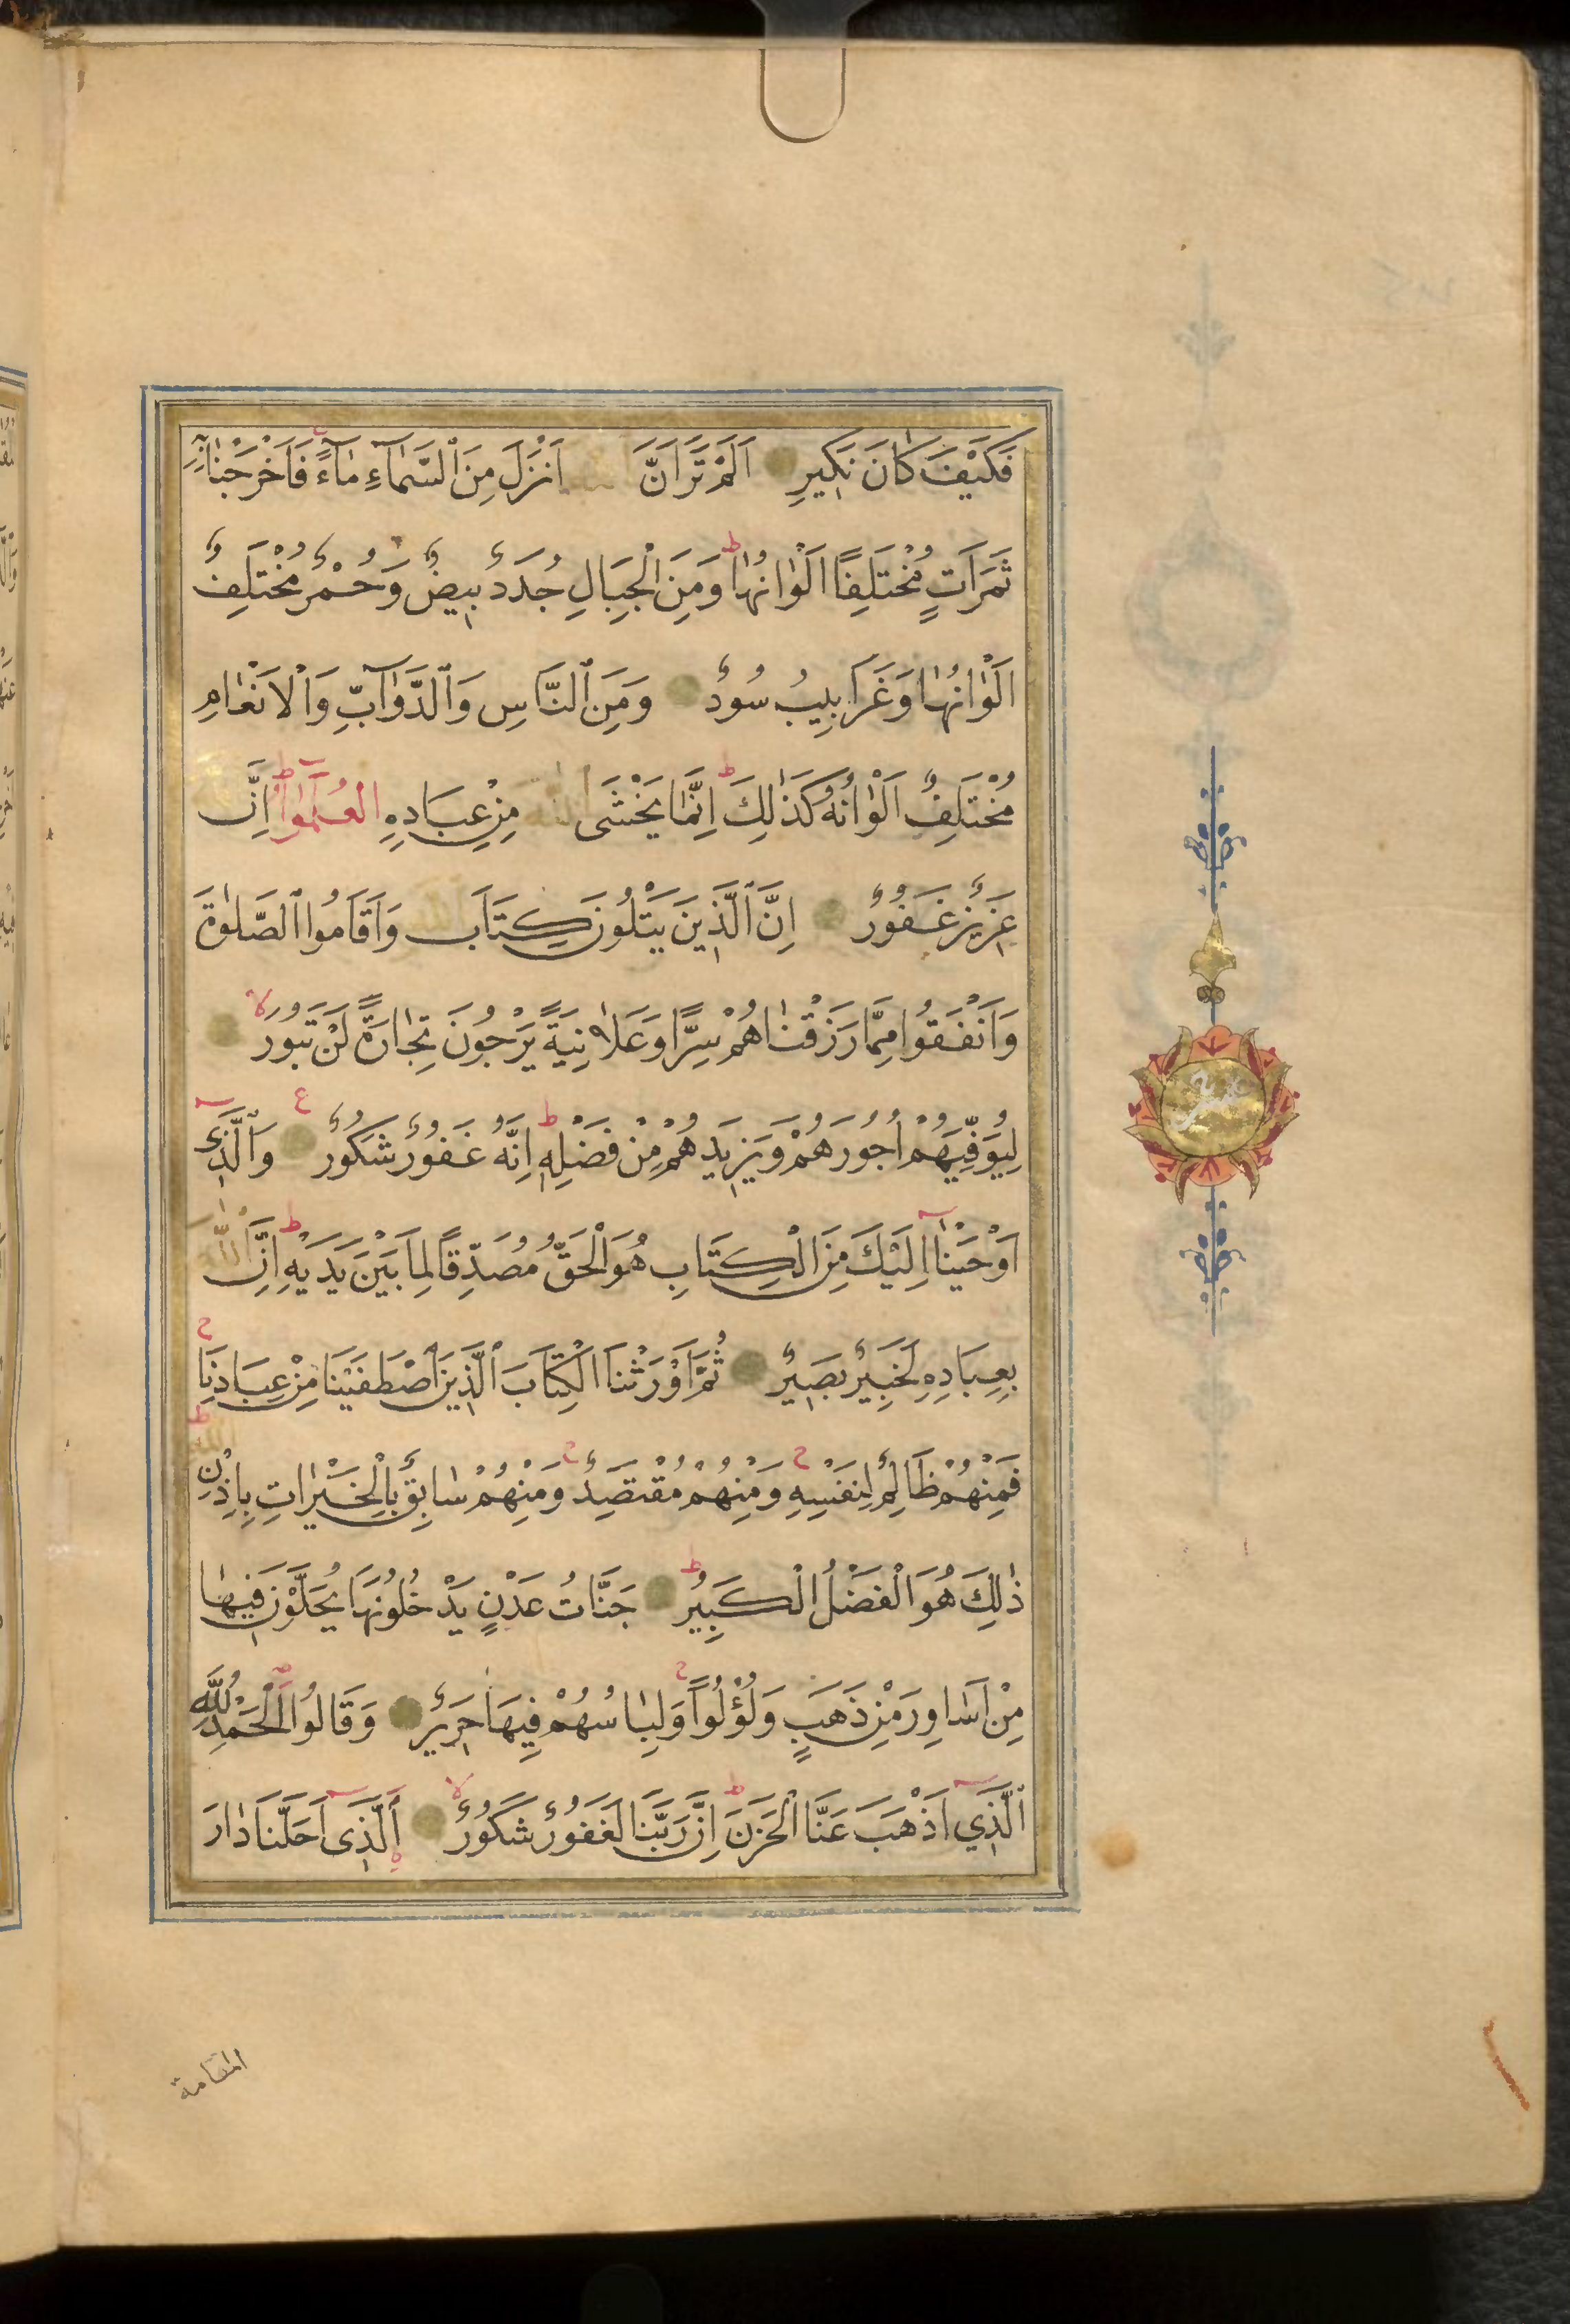 فَكَيْفَ كَانَ نَكِيرِ اَلَمْ تَرَ اَنَّ اَنْزَلَ مِنَ ٱلسَّمَآءِ مَآءً فَاَخْرَجْنَا بِهِ
ثَمَرَاتٍ مُخْتَلِفًا اَلْوَانُهَا وَمِنَ الْجِبَالِ جُدَدٌ بِيضٌ وَحُمْرٌ مُخْتَلِفٌ
اَلْوَانُهَا وَغَرَابِيبُ سُودٌ وَمِنَ ٱلنَّاسِ وَٱلدَّوَآبِّ وَالْاَنْعَامِ
مُخْتَلِفٌ اَلْوَانُهُ كَذٰلِكَ اِنَّمَا يَخْشَى اللّٰهَ مِنْ عِبَادِهِ الْعُلَمٰٓوُا اِنَّ
عَزِيزٌ غَفُورٌ اِنَّ ٱلَّذِينَ يَتْلُونَ كِتَابَ اللّٰهِ وَاَقَامُوا ٱلصَّلٰوةَ
وَاَنْفَقُوا مِمَّا رَزَقْنَاهُمْ سِرًّا وَعَلَانِيَةً يَرْجُونَ تِجَارَةً لَنْ تَبُورَ
لِيُوَفِّيَهُمْ اُجُورَهُمْ وَيَزِيدَهُمْ مِنْ فَضْلِهِ اِنَّهُ غَفُورٌ شَكُورٌ وَٱلَّذِٓى
اَوْحَيْنَآ اِلَيْكَ مِنَ الْكِتَابِ هُوَ الْحَقُّ مُصَدِّقًا لِمَا بَيْنَ يَدَيْهِ اِنَّ اللّٰهَ
بِعِبَادِهِ لَخَبِيرٌ بَصِيرٌ ثُمَّ اَوْرَثْنَا الْكِتَابَ ٱلَّذِينَ ٱصْطَفَيْنَا مِنْ عِبَادِنَا
فَمِنْهُمْ ظَالِمٌ لِنَفْسِهِ وَمِنْهُمْ مُقْتَصِدٌ وَمِنْهُمْ سَابِقٌ بِالْخَيْرَاتِ بِاِذْنِ اللّٰهِ
ذٰلِكَ هُوَ الْفَضْلُ الْكَبِيرُ جَنَّاتُ عَدْنٍ يَدْخُلُونَهَا يُحَلَّوْنَ فِيهَا
مِنْ اَسَاوِرَ مِنْ ذَهَبٍ وَلُؤْلُؤًا وَلِبَاسُهُمْ فِيهَا حَرِيرٌ وَقَالُوا الْحَمْدُ لِلّٰهِ
ٱلَّذِٓي اَذْهَبَ عَنَّا الْحَزَنَ اِنَّ رَبَّنَا لَغَفُورٌ شَكُورٌ اَلَّذِٓى اَحَلَّنَا دَارَ
المقامة
عشر